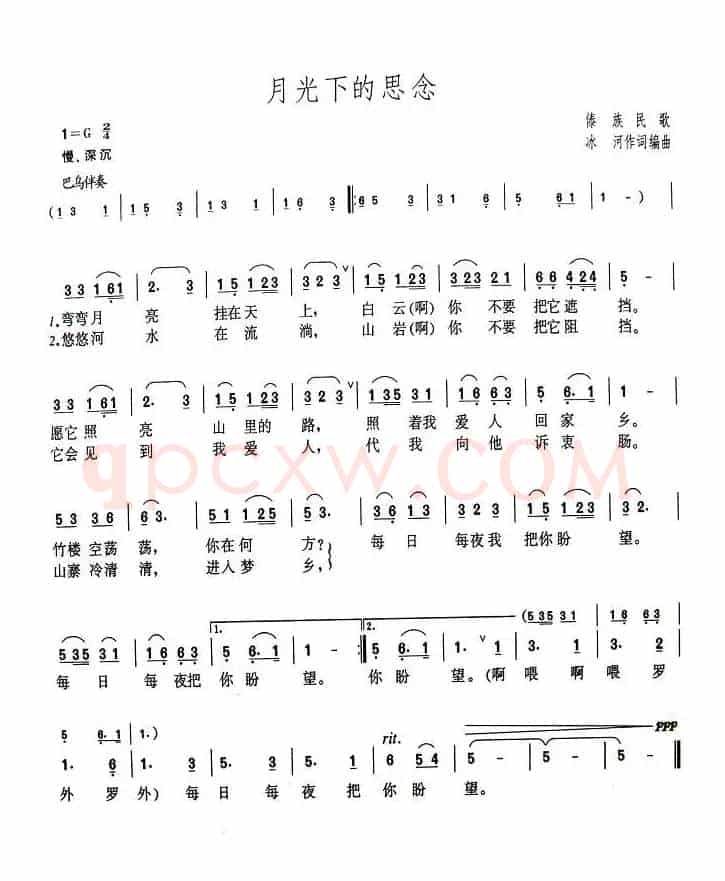 月光下的思念
傣族民歌
1=G 2/4
冰河作词编曲
慢、深沉
巴乌伴奏
(1 3 1 | 1 5 3 | 1 3 1 | 1 6 3 |: 6 5 3 | 3 1 6 | 5 6 | 1 - )
3 3 1 6 1 | 2. 3 | 1 5 1 2 3 | 3 2 3 ∨ | 1 5 1 2 3 | 3 2 3 2 1 | 6 6 4 2 4 | 5 - |
1.弯弯月 亮 挂在天 上, 白云(啊)你 不要 把它遮 挡。
2.悠悠河 水 在流 淌, 山岩(啊)你 不要 把它阻 挡。
3 3 1 6 1 | 2. 3 | 1 5 1 2 3 | 3 2 3 ∨ | 1 3 5 3 1 | 1 6 6 3 | 5 6. 1 | 5 - |
愿它照 亮 山里的 路, 照着我 爱人 回家 乡。
它会见 到 我爱 人, 代我 向他 诉衷 肠。
qpcxw.COM
5 3 3 6 | 6 3. | 5 1 1 2 5 | 3 - | 5 3 5 3 1 | 1 2 3 3 | 5 3 5 6 1 | 3 2. |
竹楼空荡 荡, 你在何 方? 每日 每夜我 把你盼 望。
山寨冷清 清, 进入梦 乡,
1. 2. (5 3 5 3 1 | 1 6 6 3 |
5 3 5 3 1 | 1 6 6 3 | 5 6. 1 | 1 - :| 5 6. 1 | 1. ∨ 1 | 3. 1 | 3. 3 |
每日 每夜把 你盼 望。 你盼 望。(啊 喂 啊 喂 罗
5 6. 1 | 1.) rit. ppp
1. 6 | 1. 3 | 5. 3 | 1. 3 | 5. 1 | 6 5 4 | 5 - | 5 - | 5 - ‖
外 罗 外) 每 日 每 夜 把 你盼 望。